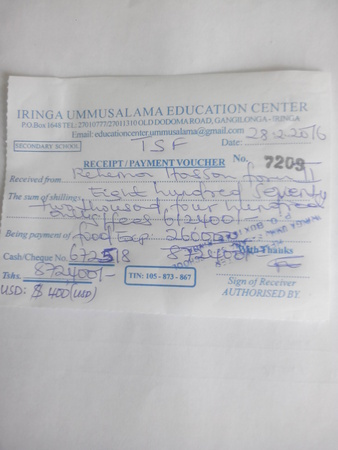 IRINGA UMMUSALAMA EDUCATION CENTER
P.O.Box 1648 TEL:-27010777/27011310 OLD DODOMA ROAD, GANGILONGA - IRINGA
Email: educationcenter.ummusalama@gmail.com
SECONDARY SCHOOL TSF Date: 28.2.2016
RECEIPT / PAYMENT VOUCHER No. 7209
Received from Hasson form II
The sum of shillings Eight hundred seventy
two thousand four hundred
fees 612400/-
Being payment of food Exp: 260000
Cash/Cheque No. 672518 872400/- With Thanks
Tshs. 872400/- TIN: 105 - 873 - 867 Sign of Receiver
USD: $ 400 (USD) AUTHORISED BY.